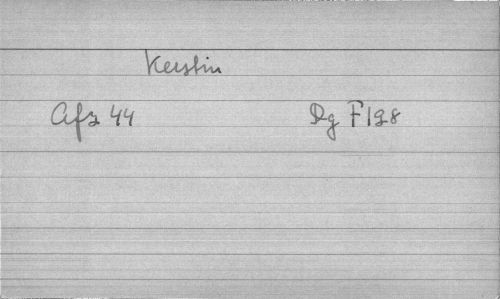 Kerstin
Afz 44 Dg F 198